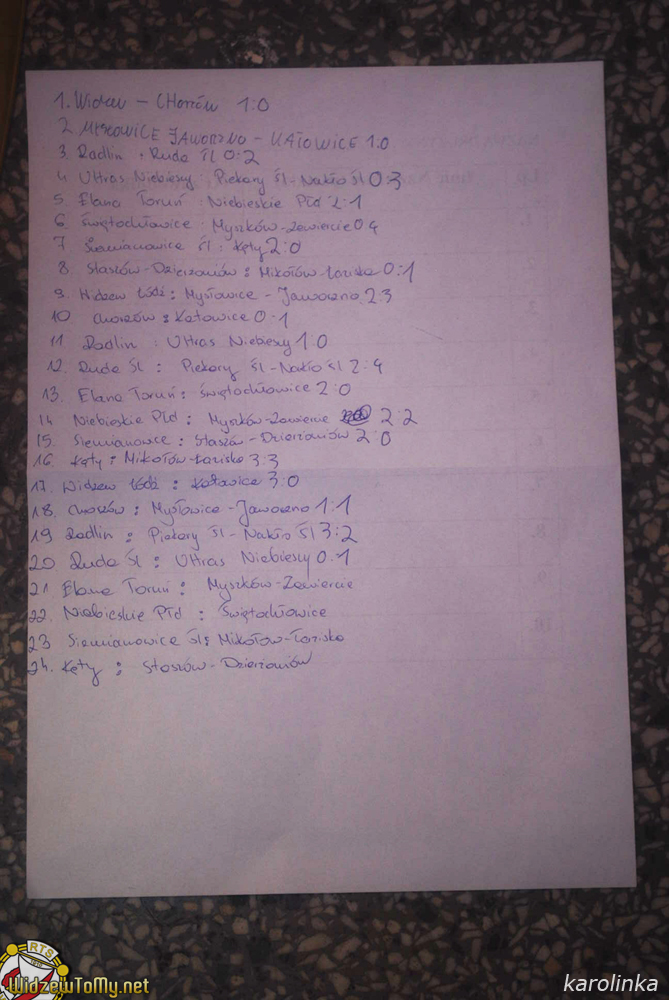 1. Widzew - CHorzów 1:0
2. MYSŁOWICE JAWORZNO - KATOWICE 1:0
3. Radlin : Ruda Śl 0:2
4. Ultras Niebiesy : Piekary Śl - Nakło Śl 0:3
5. Elana Toruń : Niebieskie Płd 2:1
6. Świętochłowice : Myszków-Zawiercie 0 4
7. Siemianowice Śl : Kęty 2:0
8. Staszów-Dzierżoniów : Mikołów Łaziska 0:1
9. Widzew Łódź : Mysłowice - Jaworzno 2 3
10 Chorzów : Katowice 0-1
11 Radlin : Ultras Niebiesy 1:0
12. Ruda Śl : Piekary Śl - Nakło Śl 2:4
13. Elana Toruń : Świętochłowice 2:0
14 Niebieskie Płd : Myszków-Zawiercie 2:2
15. Siemianowice : Staszów-Dzierżoniów 2:0
16. Kęty : Mikołów-Łaziska 3:3
17. Widzew Łódź : Katowice 3:0
18. Chorzów : Mysłowice - Jaworzno 1:1
19 Radlin : Piekary Śl - Nakło Śl 3:2
20 Ruda Śl : Ultras Niebiesy 0:1
21. Elana Toruń : Myszków-Zawiercie
22. Niebieskie Płd : Świętochłowice
23 Siemianowice Śl : Mikołów-Łaziska
24. Kęty : Staszów-Dzierżoniów
RTS
WidzewToMy.net
karolinka